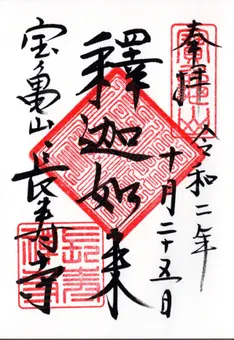 奉拝
令和二年
十月二十五日
釋迦如来
宝亀山長寿寺
長寿